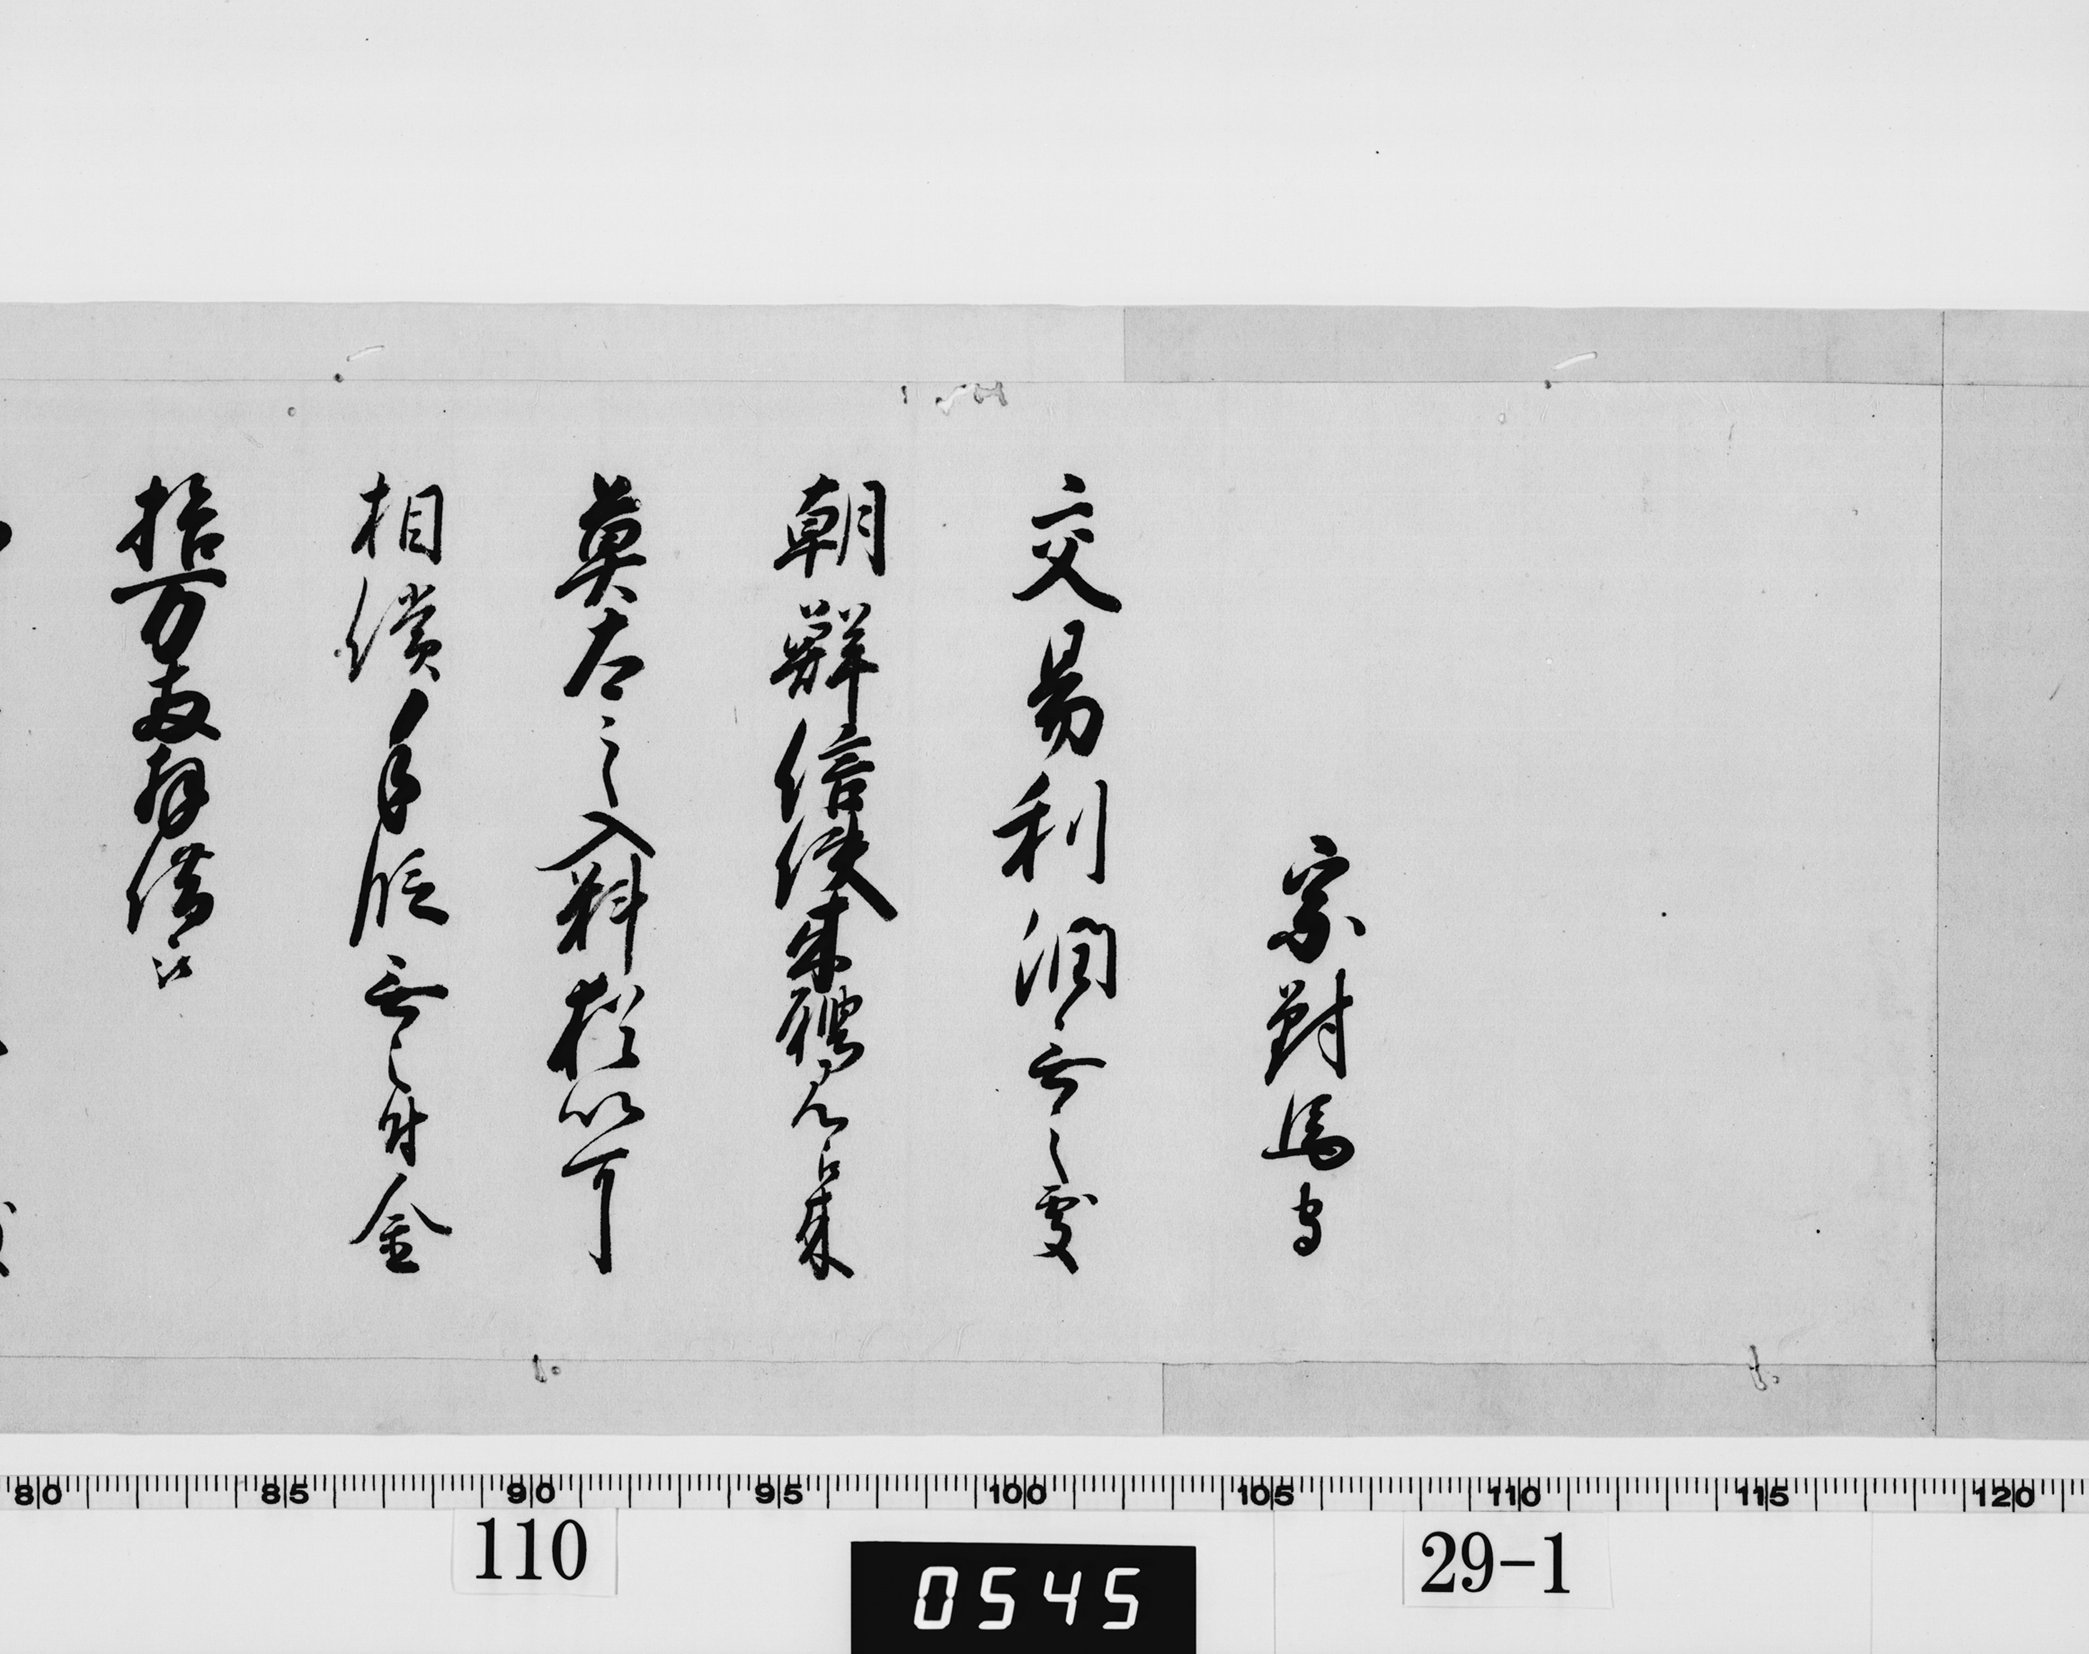 宗對馬守
交易利潤無之處
朝鮮信使来聘及
莫太之入料指以可
相償手段無之付金
拾万両拝借
80 85 90 95 100 105 110 115 120
110
0545
29-1